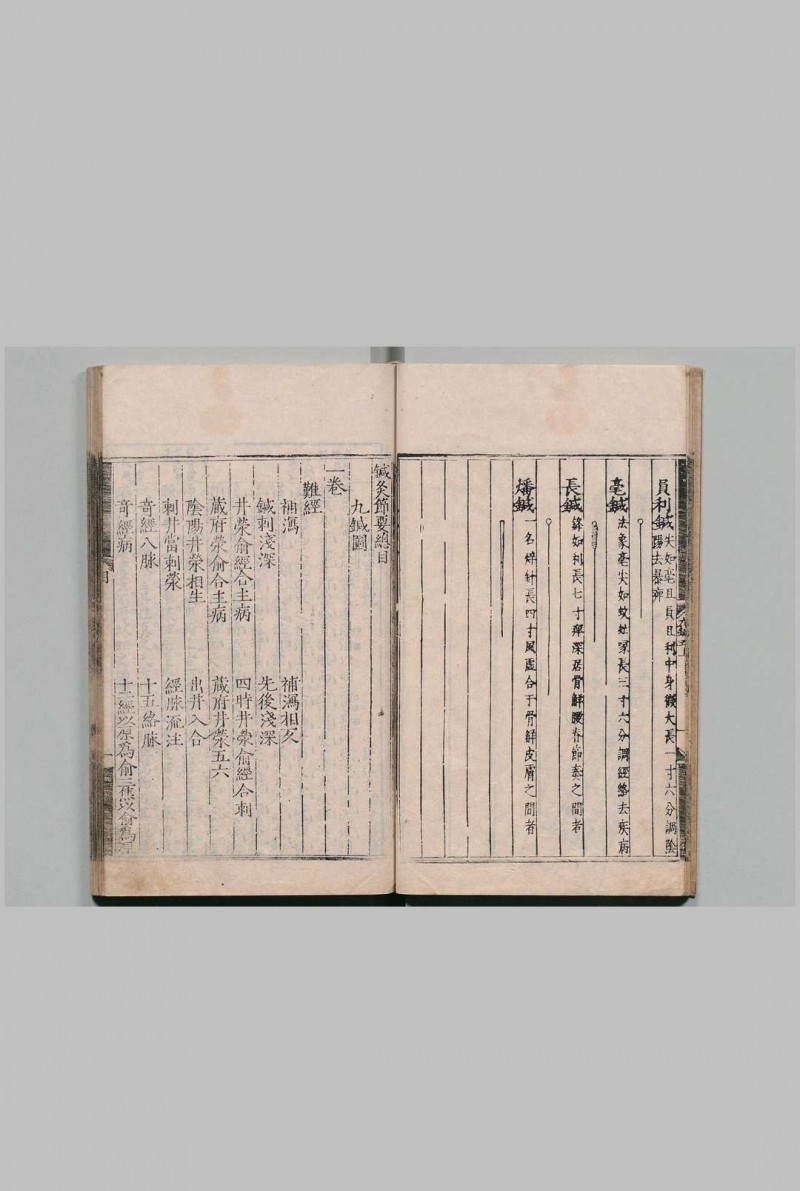 員利鍼 尖如毫且員且利中身微大長一寸六分調陰
陽去暴痺
毫鍼 法象毫尖如蚊虻喙長三寸六分調經絡去疾病
長鍼 鋒如利長七寸痺深居骨解腰脊節奏之間者
燔鍼 一名焠針長四寸風虛合于骨解皮膚之間者
鍼灸節要總目
九鍼圖
一卷
難經
補瀉 補瀉相反
鍼刺淺深 先後淺深
井滎俞經合主病 四時井滎俞經合刺
藏府滎俞合主病 藏府井滎五六
陰陽井滎相生 出井入合
刺井當刺滎 經脉流注
奇經八脉 十五絡脉
奇經病 十二經以原爲俞三焦以俞爲原